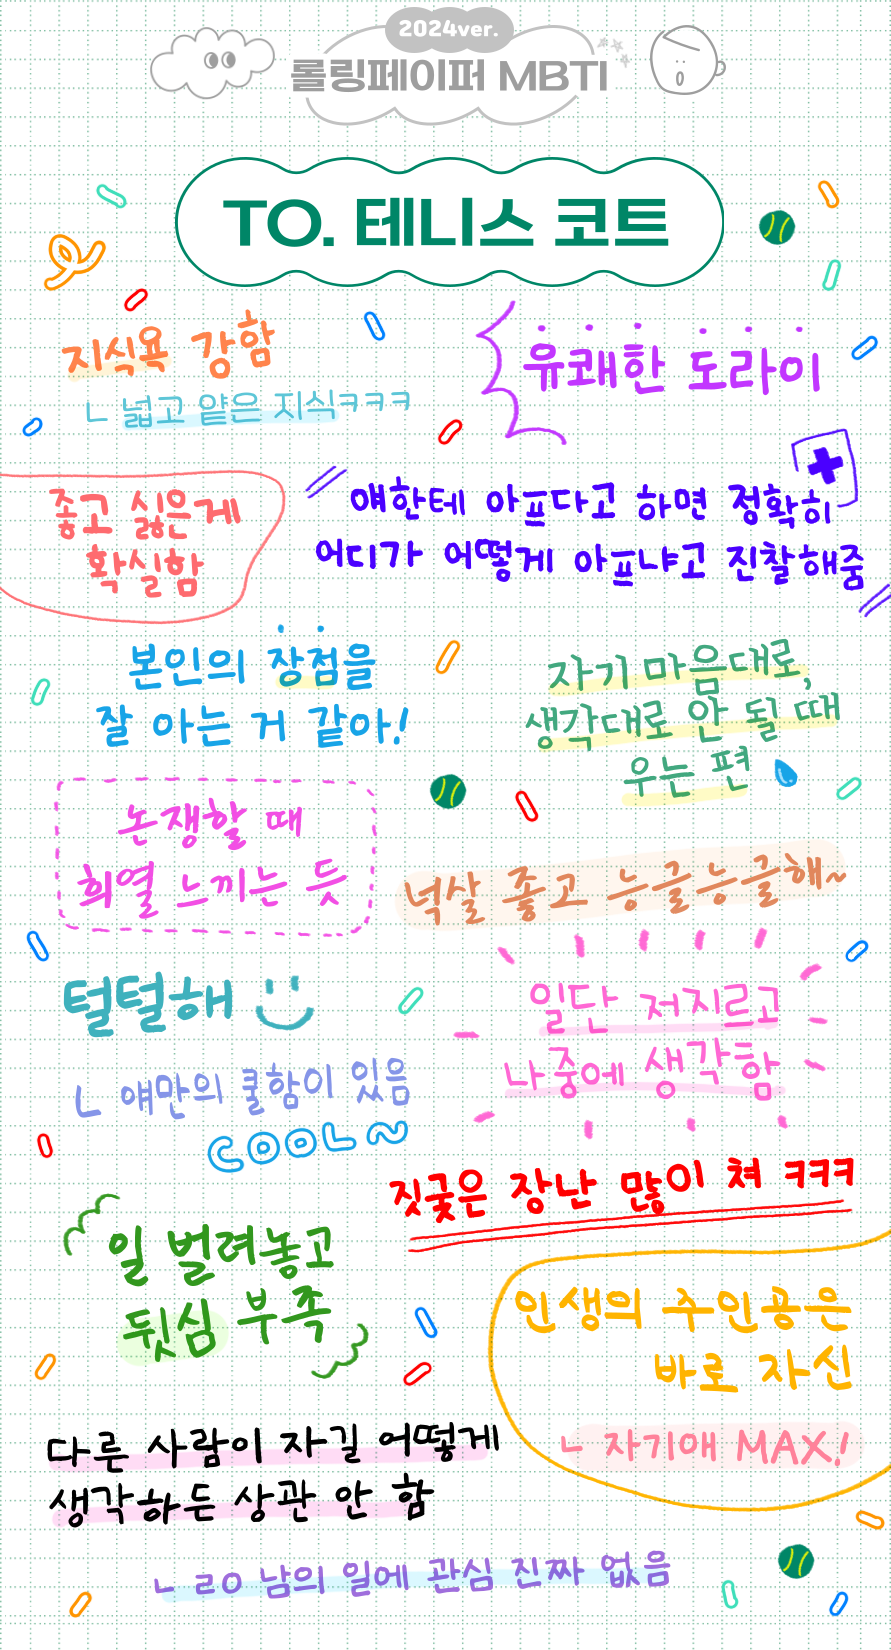 2024ver.
롤링페이퍼 MBTI
TO. 테니스 코트
지식욕 강함
ㄴ 넓고 얕은 지식ㅋㅋㅋ
유쾌한 도라이
좋고 싫은게
확실함
얘한테 아프다고 하면 정확히
어디가 어떻게 아프냐고 진찰해줌
본인의 장점을
잘 아는 거 같아!
자기 마음대로,
생각대로 안 될 때
우는 편
논쟁할 때
희열 느끼는 듯
넉살 좋고 능글능글해~
털털해
ㄴ 얘만의 쿨함이 있음
COOL~
일단 저지르고
나중에 생각함
짓궂은 장난 많이 쳐 ㅋㅋㅋ
일 벌려놓고
뒷심 부족
인생의 주인공은
바로 자신
ㄴ 자기애 MAX!
다른 사람이 자길 어떻게
생각하든 상관 안 함
ㄴ ㄹㅇ 남의 일에 관심 진짜 없음